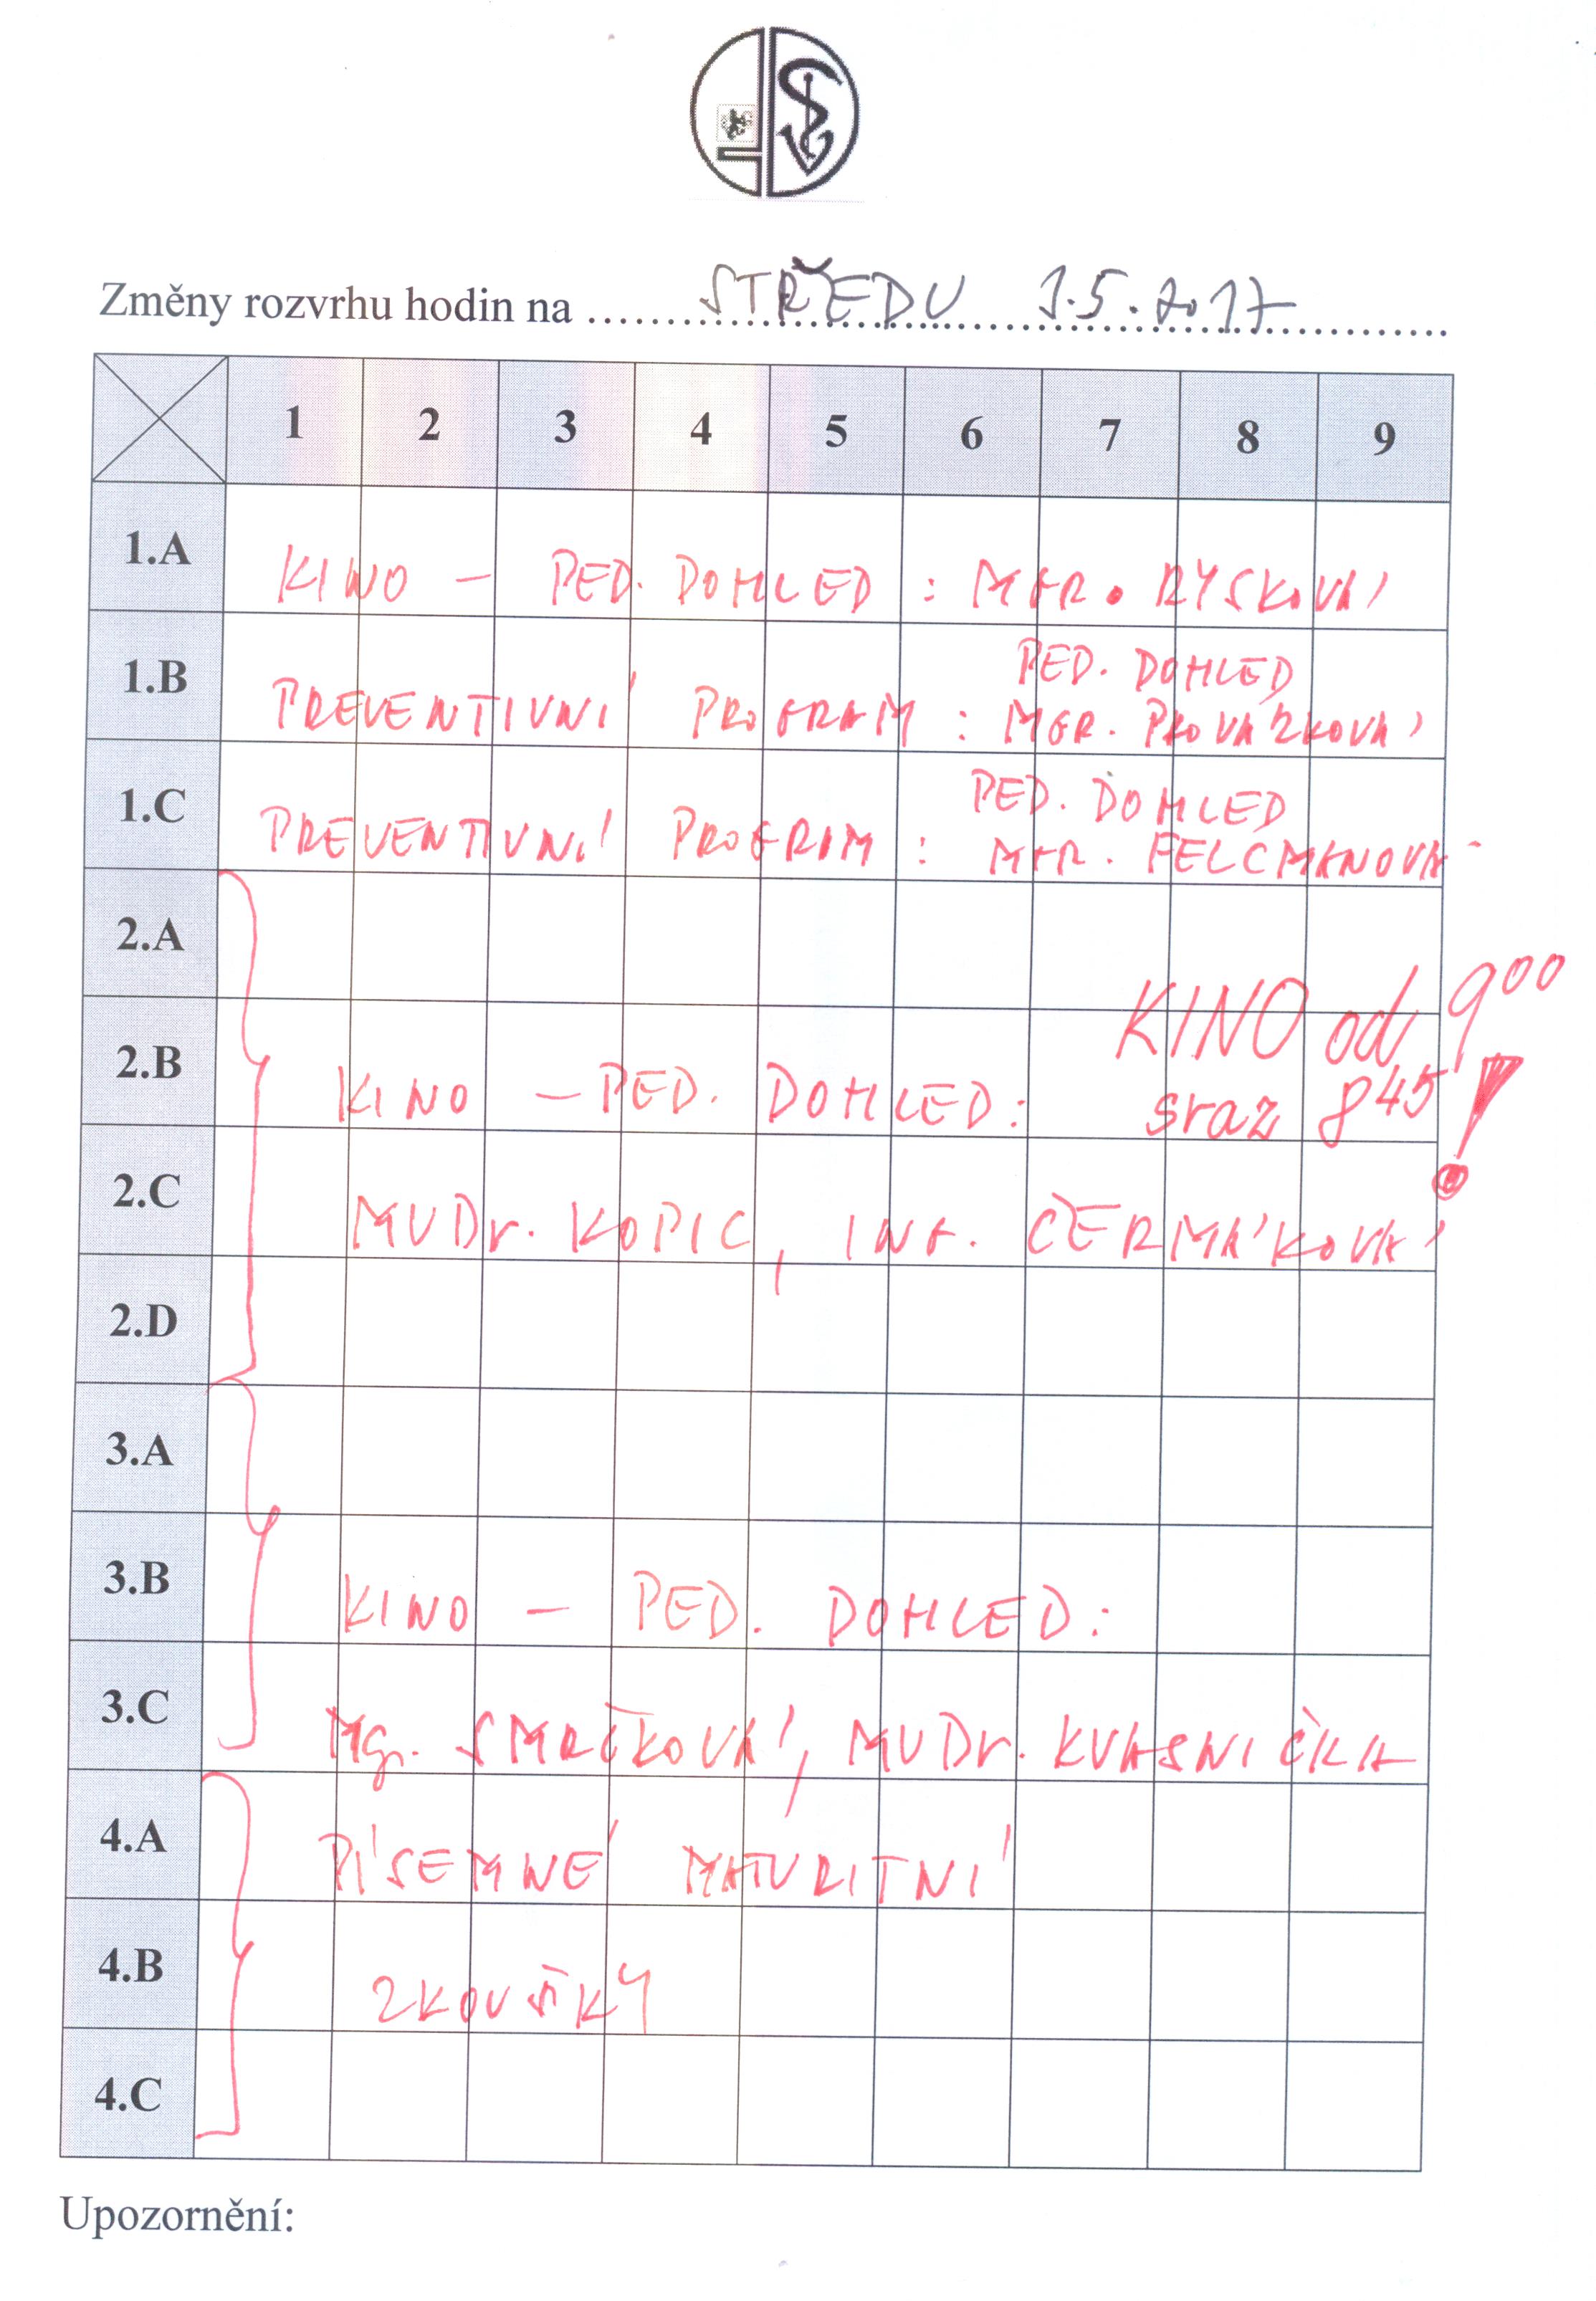 Změny rozvrhu hodin na STŘEDU 3.5.2017
1 2 3 4 5 6 7 8 9
1.A KINO – PED. DOHLED : MGR. RYSKOVÁ
PED. DOHLED
1.B PREVENTIVNÍ PROGRAM : MGR. PROVÁZKOVÁ
PED. DOHLED
1.C PREVENTIVNÍ PROGRAM : MGR. FELCMANOVÁ
2.A
KINO od 900
2.B KINO – PED. DOHLED: sraz 845 !
2.C MUDr. KOPIC, ING. ČERMÁKOVÁ
2.D
3.A
3.B KINO – PED. DOHLED:
3.C Mgr. SMRČKOVÁ, MUDr. KVASNIČKA
4.A PÍSEMNÉ MATURITNÍ
4.B ZKOUŠKY
4.C
Upozornění: